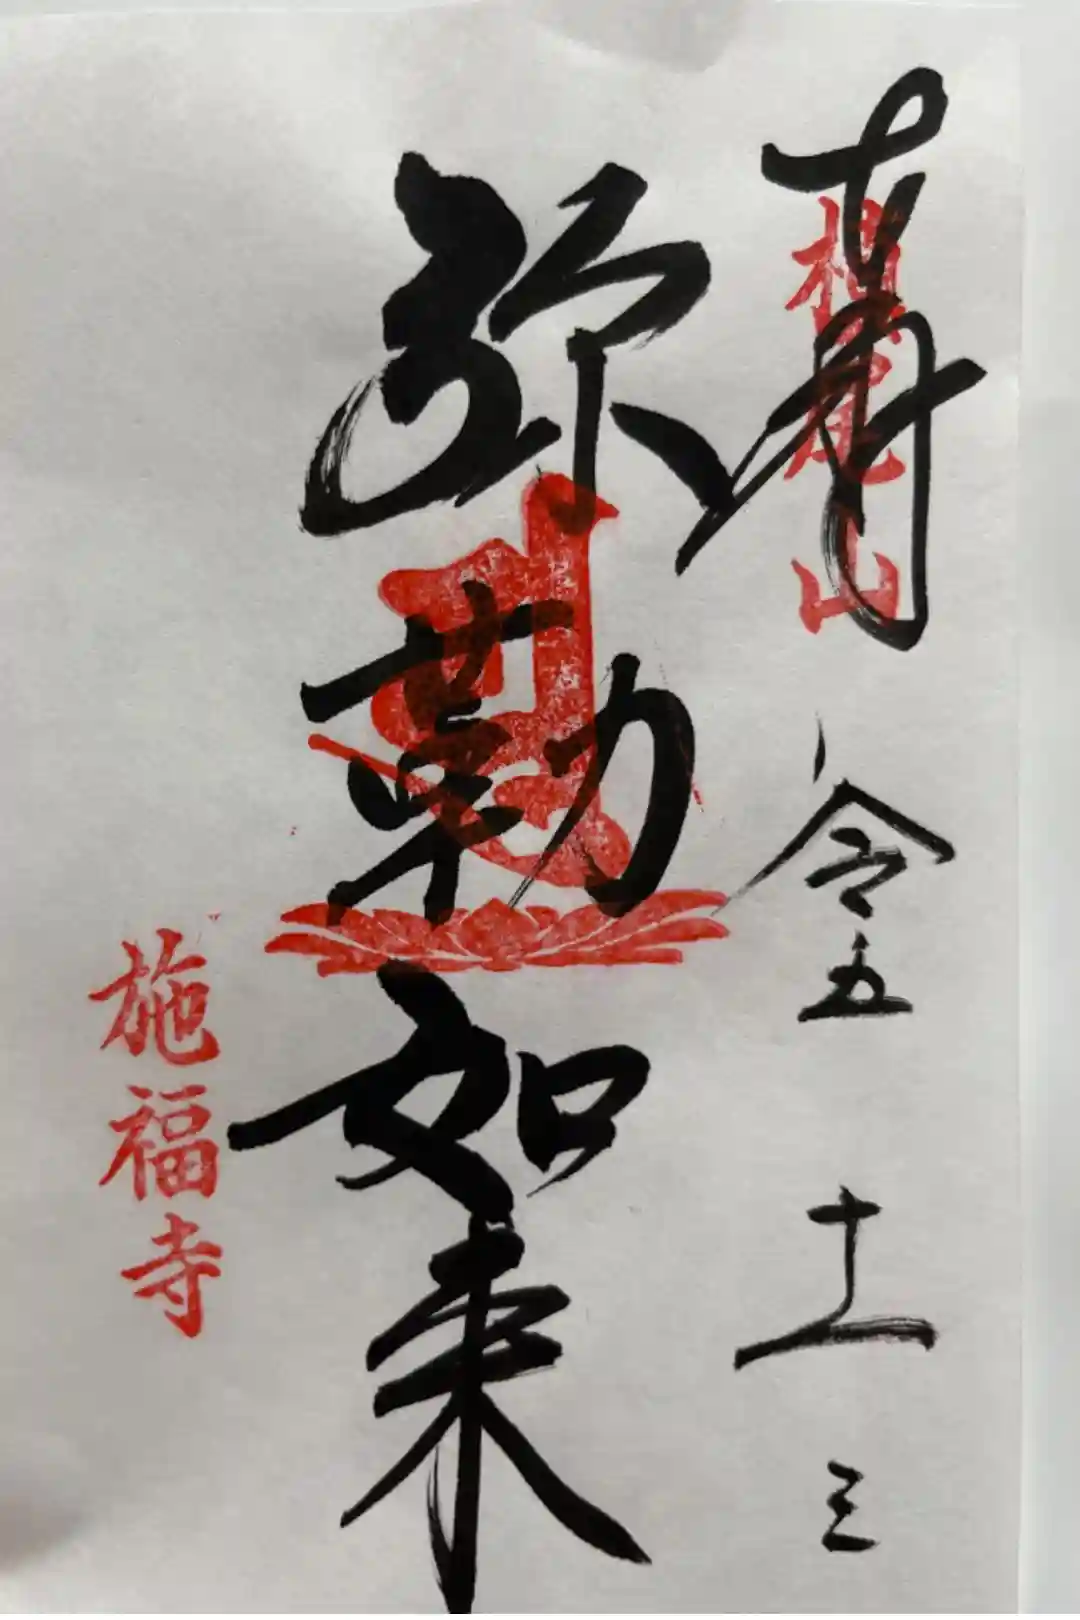 奉拝
槇尾山
令五 十一 三
弥勒如来
施福寺